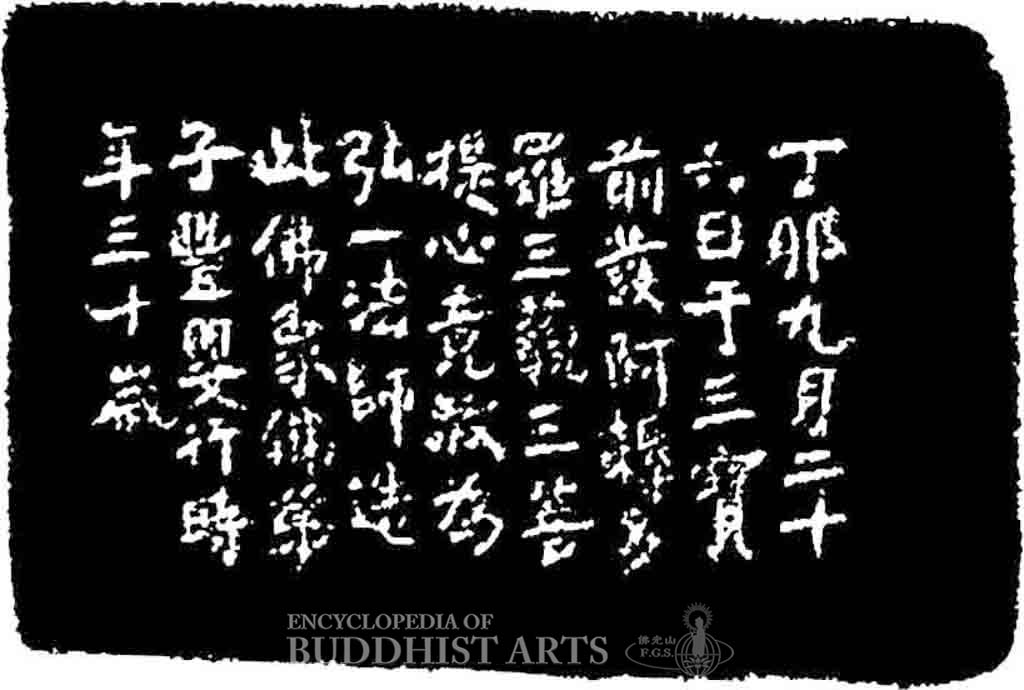 丁卯九月二十
六日于三寶
前發阿耨多
羅三藐三菩
提心竟敬為
弘一法師造
此佛象佛弟
子豐嬰行時
年三十歲
ENCYCLOPEDIA OF
BUDDHIST ARTS
佛光山
F.G.S.